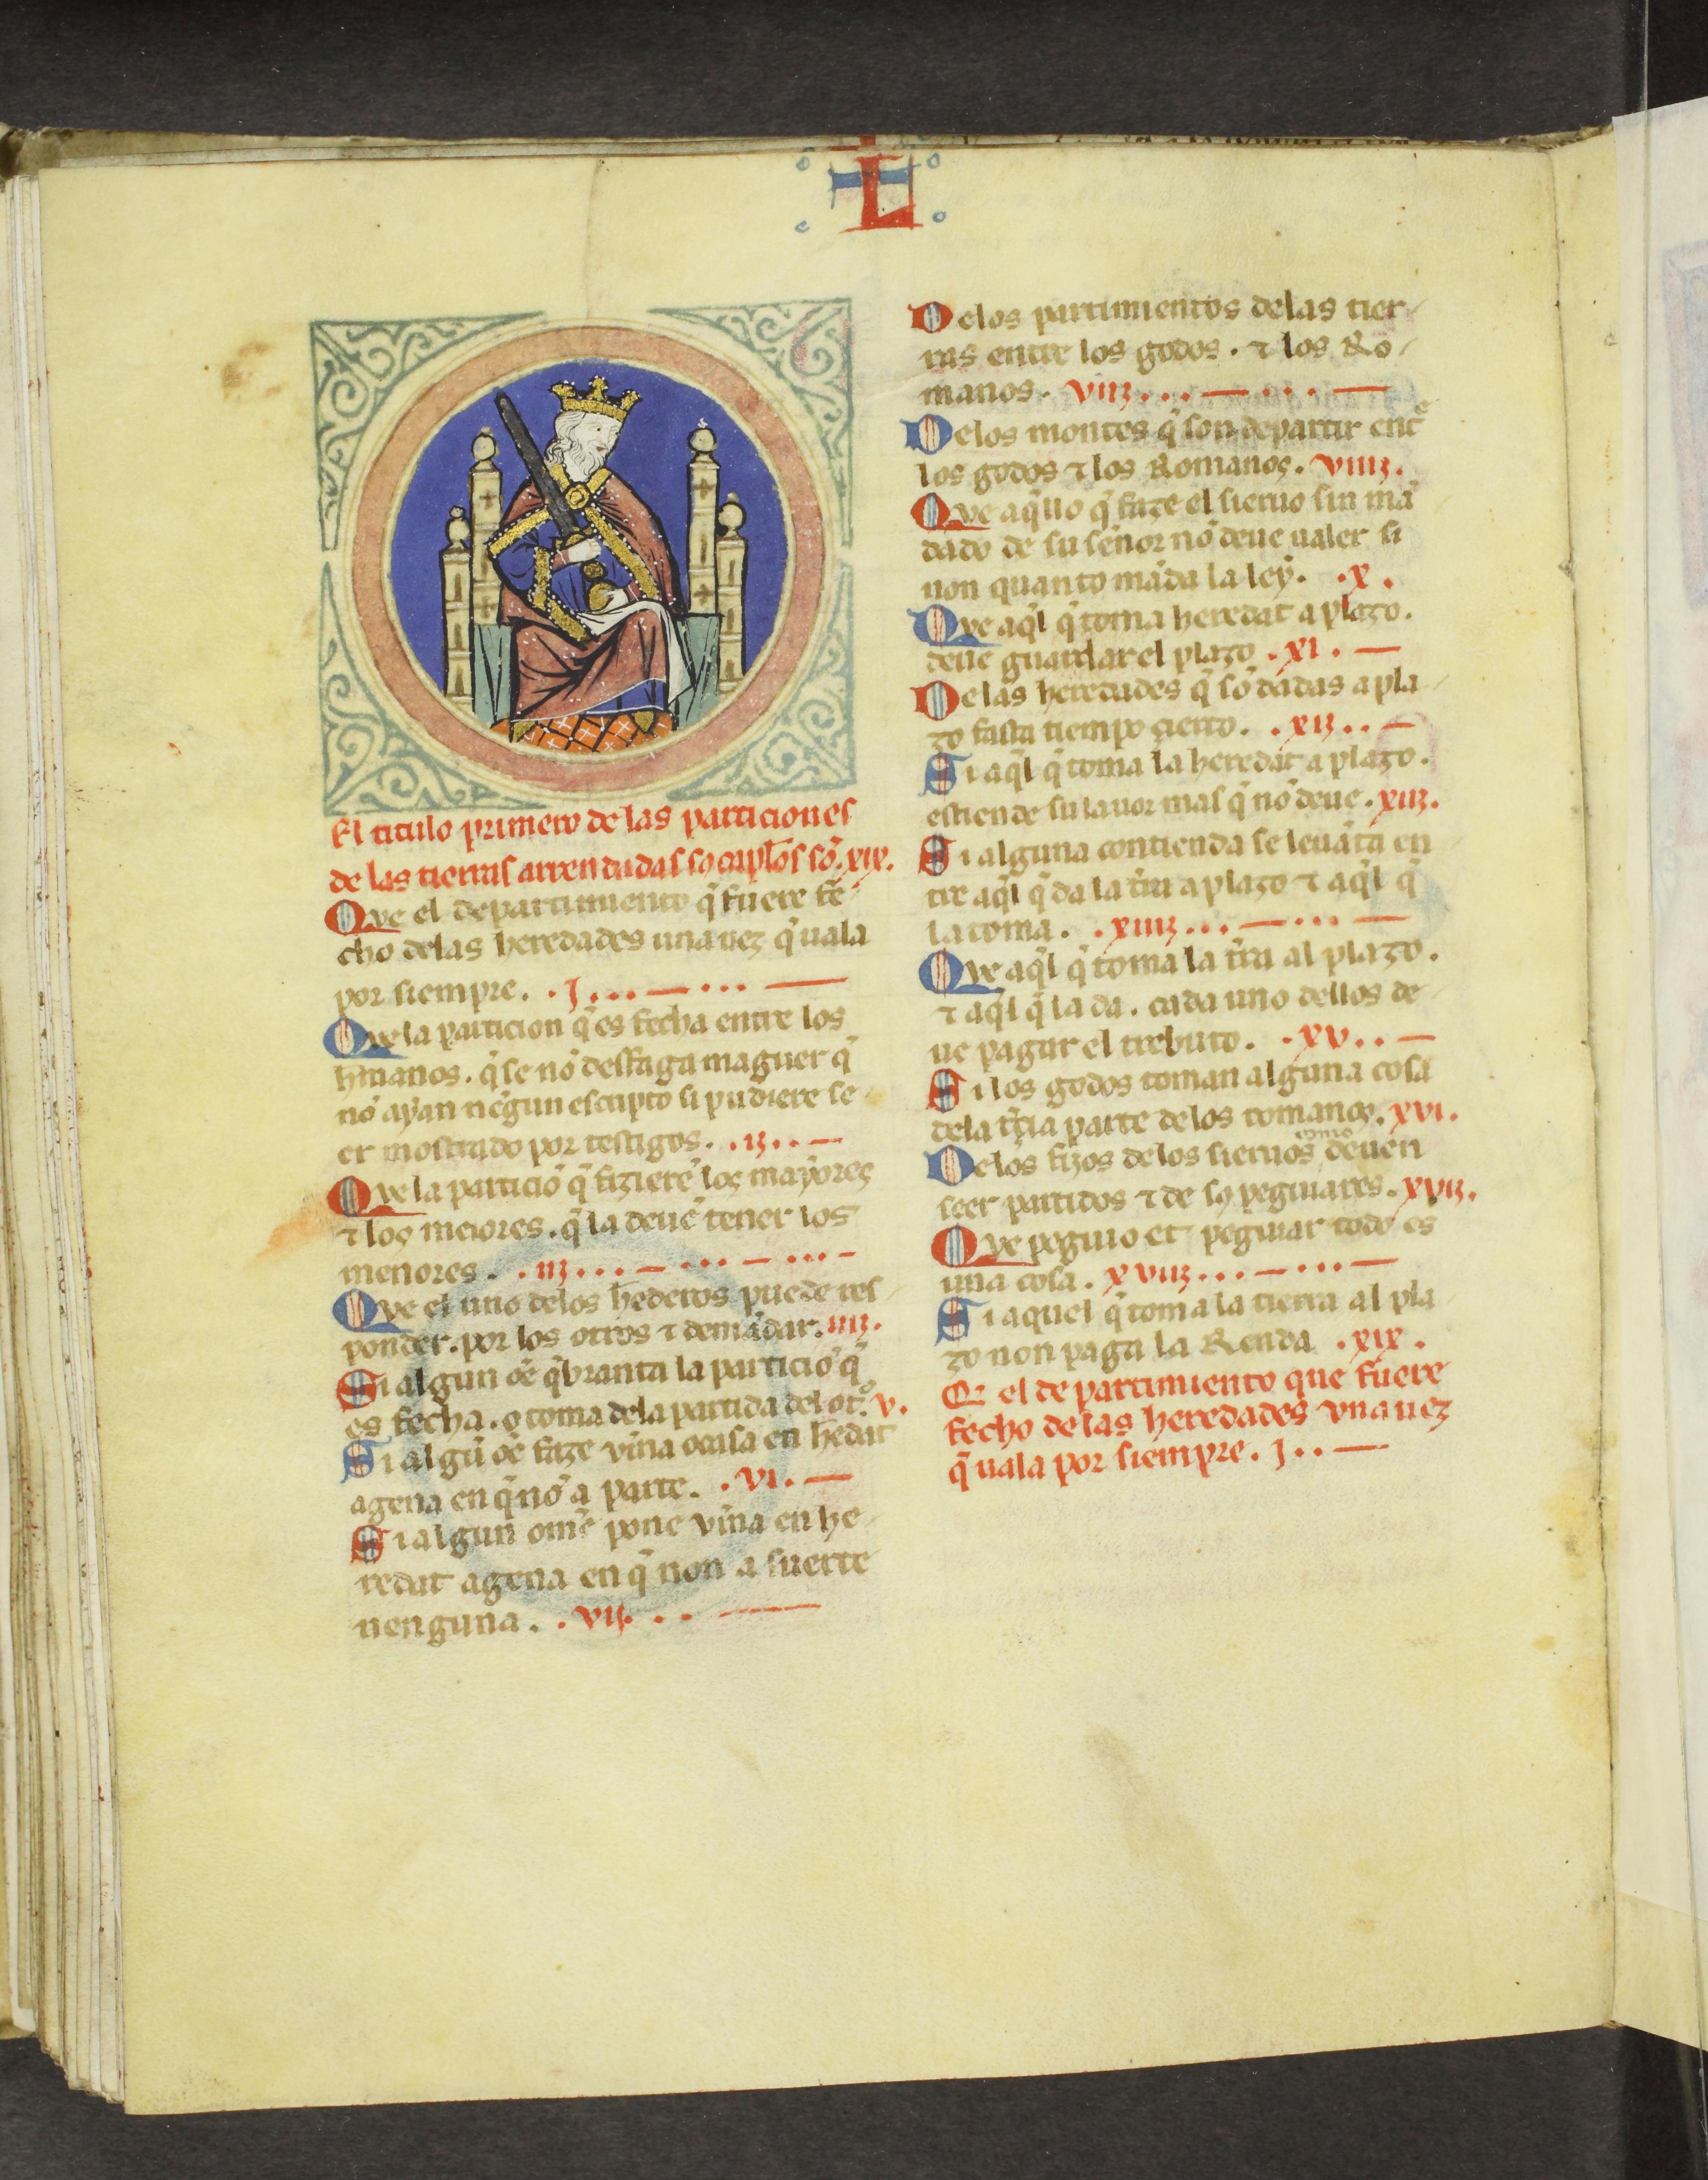 L
El titulo primero de las particiones
de las tierras arrendadas ⁊ sꝯ capĺos sõ .xix.
Que el departimiento q̃ fuere fe
cho delas heredades una uez q̃ uala
por siempre. .j.
Que la particion q̃ es fecha entre los
hm̃anos. q̃ se nõ desfaga maguer q̃
nõ ayan negun escripto si pudiere se
er mostrado por testigos. .ij.
Que la particiõ q̃ fizierẽ los mayores
⁊ los meiores. q̃ la deuẽ tener los
menores. .iij.
Que el uno delos h̃ederos puede res
ponder. por los otros ⁊ demãdar. iiij.
Si algun oẽ q̃branta la particiõ q̃
es fecha. o toma dela partida del otº. v.
Si algũ oẽ faze viña o casa en h̃edat
agena en q̃ nõ a parte. .vi.
Si algun omẽ pone viña en he
redat agena en q̃ non a suerte
nenguna. .vij.
Delos partimientos delas tier
ras entre los godos. ⁊ los Ro
manos. viij.
Delos montes q̃ son departir entͤ
los godos ⁊ los Romanos. viiij.
Que aq̃llo q̃ faze el sieruo sin mã
dado de su señor nõ deue ualer si
non quanto mãda la ley. .x.
Que aq̃l q̃ toma heredat a plazo.
deue guardar el plazo .xi.
Delas heredades q̃ sõ dadas a pla
zo fasta tiempo cierto. .xij.
Si aq̃l q̃ toma la heredat a plazo.
estiende su lauor mas q̃ nõ deue. xiij.
Si alguna contienda se leuãta en
tre aq̃l q̃ da la tr̃ra a plazo ⁊ aq̃l q̃
la toma. .xiiij.
Que aq̃l q̃ toma la tr̃ra al plazo.
⁊ aq̃l q̃ la da. cada uno dellos de
ue pagar el trebuto. .xv.
Si los godos toman alguna cosa
dela tr̃cia parte de los romanos. xvi.
Delos fijos de los sieruos como deuen
seer partidos ⁊ de sꝯ peguiares. xvij.
Que peguio et peguiar todo es
una cosa. xviij.
Si aquel q̃ toma la tierra al pla
zo non paga la Renda .xix.
Q̃ el departimiento que fuere
fecho de las heredades vna uez
q̃ uala por siempre. j.